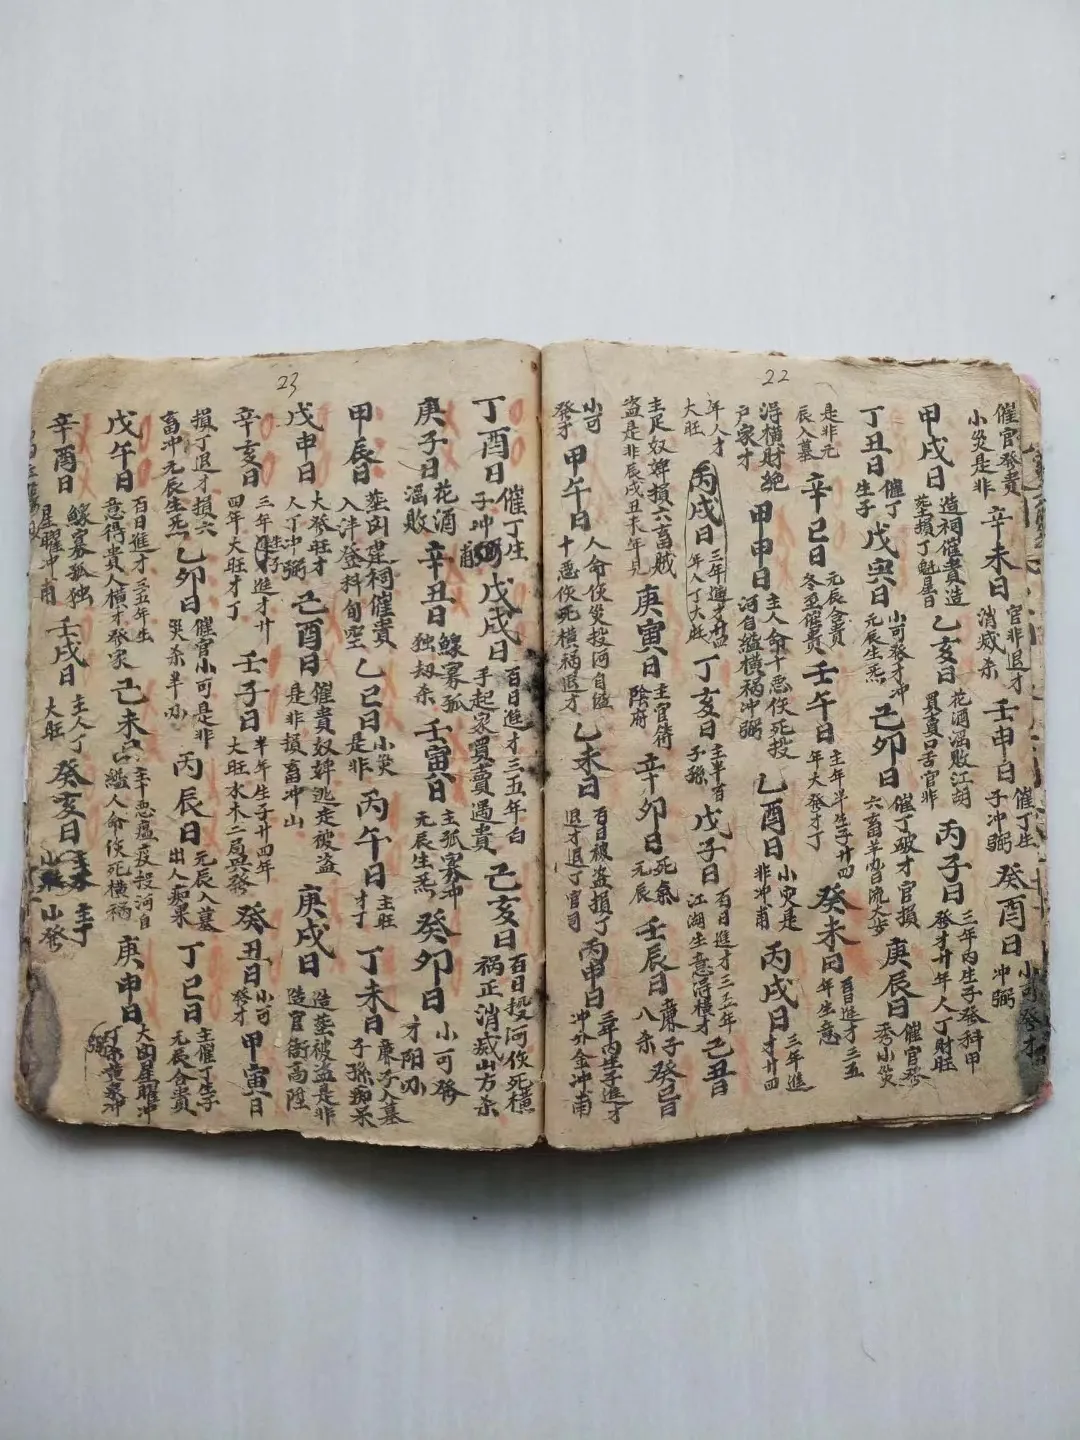 22
催官發貴
小災是非
辛未日
官非退才
消滅杀
壬申日
催丁生
子冲弼
癸酉日
小可發才
冲弼
甲戌日
造祠催貴造
葬損丁魁星日
乙亥日
花酒滛敗江湖
買賣口苦官非
丙子日
三年内生子發科甲
發才廿年人丁財旺
丁丑日
催丁
生子
戊寅日
小可發才冲
元辰生炁
己卯日
催丁破才官損
六畜
庚辰日
催官發
秀小災
是非元
辰入墓
辛巳日
元辰合貴
冬至催貴
壬午日
主年半生子廿四
年大發才丁
癸未日
百日進才三五
年生意
淂橫財絶
户家才
甲申日
主人命十惡伙死投
河自縊橫祸冲弼
乙酉日
小災是
非冲甫
丙戌日
三年進
才廿四
年人才
大旺
丙戌日
三年進才廿四
年人丁大旺
丁亥日
子孫
戊子日
百日進才三五年
江湖生意淂橫才
己丑日
主足奴婢損六畜賊
盗是非辰戌丑未年見
庚寅日
主官符
陰府
辛卯日
死氣
元辰
壬辰日
廉子
八杀
癸巳日
小可
發才
甲午日
人命伙災投河自縊
十惡伙死橫祸退才
乙未日
百日被盗損丁
退才退丁官司
丙申日
三年内生子進才
冲外金冲甫
23
丁酉日
催丁生
子冲弼
戊戌日
百日進才三五年白
手起家買賣遇貴
己亥日
百日投河伙死橫
祸正消滅山方杀
庚子日
花酒
滛敗
辛丑日
鰥寡孤
独刼杀
壬寅日
主孤寡冲
元辰生炁
癸卯日
小可發
才陽刃
甲辰日
葬刽建祠催貴
入泮登科旬空
乙巳日
小災
是非
丙午日
主旺
才丁
丁未日
廉子入墓
子孫痴呆
戊申日
大發旺才
人丁冲弼
己酉日
催貴奴婢逃走被盗
是非損畜冲山
庚戌日
造葬被盗是非
造官衙高陞
辛亥日
三年生子進才廿
四年大旺才丁
壬子日
半年生子廿四年
大旺水木二局興發
癸丑日
小可
發才
甲寅日
損丁退才損六
畜冲元辰生炁
乙卯日
催官小可是非
災杀羊刃
丙辰日
元辰入墓
出人痴呆
丁巳日
主催丁生子
元辰合貴
戊午日
百日進才三五年生
意得貴人橫才發家
己未日
主十惡瘟疫投河自
縊人命伙死橫祸
庚申日
大凶星曜冲
辛酉日
鰥寡孤独
星曜冲甫
壬戌日
主人丁
大旺
癸亥日
小發